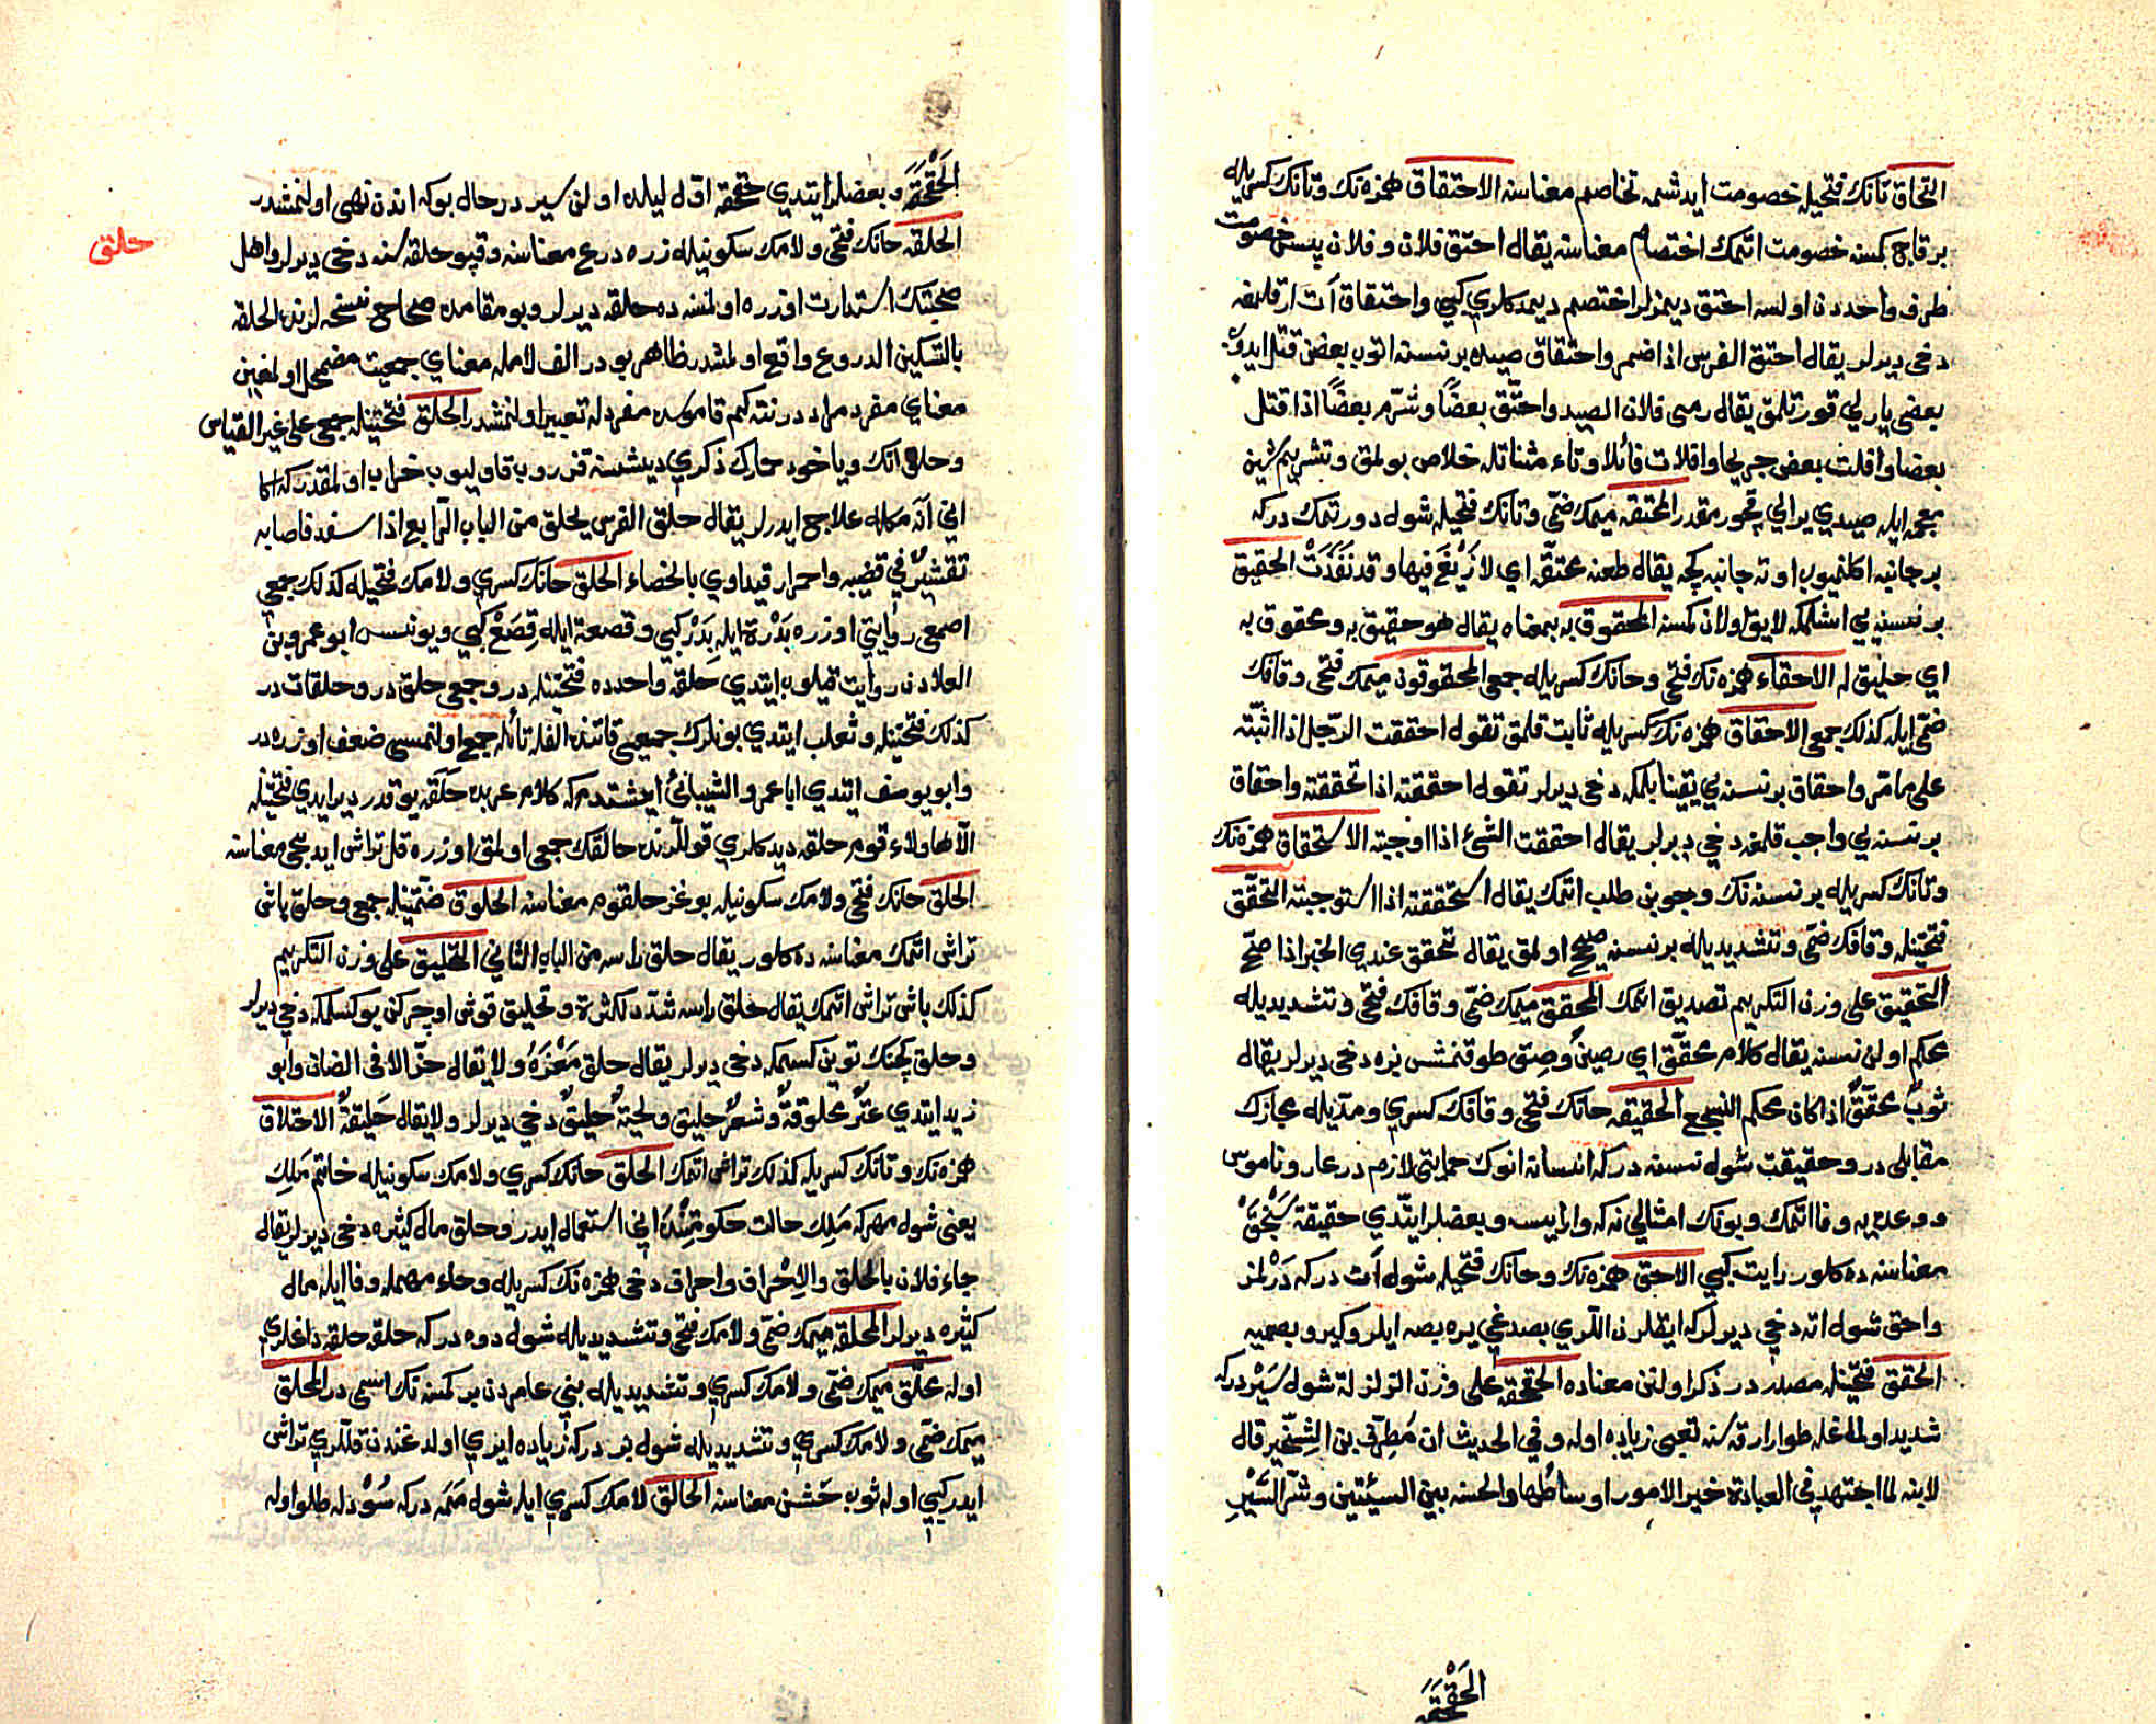 التحاق تانك فتحيله خصومت ايدشمه تخاصم معناسنه الاحتقاق همزه نك وتانك كسريله
بر قاچ كمسنه خصومت اتمك اختصام معناسنه يقال احتق فلان و فلان يعنى خصومت
طرف واحددن اولسه احتق ديمزلر اختصم ديمدكلرى كبى واحتقاق آت ارقلمغه
دخى ديرلر يقال احتق الفرس اذا ضمر واحتقاق صيده بر نسنه اتوب بعضن قتل ايدوب
بعضى يارلى قورتلمق يقال رمى فلان الصيد واحتق بعضًا وشرّم بعضًا اذا قتل
بعضا وافلت بعض جريحا وافلات فائلا وتاء مثناتله خلاص بولمق وتشريم شين
معجمه ايله صيدى يرالى قچورمقدر المحتقه ميمك ضمّى وتانك فتحيله شوله دورتمك دركه
بر جانبه اكلنميوب اوته جانبه كچه يقال طعنه محتقّه اى لا زيغ فيها وقد نفذت الحقيق
بر نسنه يى اشلمكه لايق اولان كمسنه المحقوق به بمعناه يقال هو حقيق به ومحقوق به
اى خليق له الاحقاء همزه نك فتحى وحانك كسريله جمع المحقوقون ميمك فتحى وقافك
ضمّى ايله كذلك جمع الاحقاق همزه نك كسريله ثابت قلمق تقول احققت الرّجل اذا اثبته
على ما مرّ واحقاق بر نسنه يى يقينا بلمكه دخى ديرلر تقول احققته اذا تحققته واحقاق
بر نسنه يى واجب قلمغه دخى ديرلر يقال احققت الشئ اذا اوجبته الاستحقاق همزه نك
وتانك كسريله بر نسنه نك وجوبن طلب اتمك يقال استحققته اذا استوجبته التحقّق
فتحتينله وقافك ضمّى وتشديديله بر نسنه صحيح اولمق يقال تحقق عندى الخبر اذا صحّ
التحقيق على وزن التكريم تصديق اتمك المحقق ميمك ضمّى وقافك فتحى وتشديديله
محكم اولن نسنه يقال كلام محقّق اى رصين وصق طوقنمش بزه دخى ديرلر يقال
ثوب محقّق اذا كان محكم النسيج الحقيقه حانك فتحى وقافك كسرى ومدّيله مجازك
مقابلى در وحقيقت شوله نسنه دركه انسانه انوك حمايتى لازم در عار وناموس
ووعديه وفا اتمك وبونك امثالى نه كه وارايسه وبعضلر ايتدى حقيقة سنجق
معناسنه ده كلور رايت كبى الاحق همزه نك وحانك فتحيله شوله آت دركه درلمز
واحق شوله اته دخى ديرلركه ايقلرن اللرى بصدغى يره بصه ايلرو كيرو بصميه
الحقق فتحتينله مصدردر ذكر اولنن معناده الحقحقه على وزن الزلزلة شوله سير دركه
شديد اولمغله طوار ارقه سنه تعبى زياده اوله وفي الحديث ان مطرّف بن الشخّير قال
لابنه لما اجتهد في العبادة خير الامور اوساطها والحسنه بين السيئتين وشرّ السّير
الحقحقة
الحقحقة و بعضلر ايتدى حقحقه اوّل ليلده اولن سير درحال بوكه اندن نهى اولنمشدر
الحلقه حانك فتحى ولامك سكونيله زره درع معناسنه وقپو حلقه سنه دخى ديرلر واهل
حلق
صحبتك استدارت اوزره اولمسنه ده حلقه ديرلر وبو مقامده صحاح نسخه لرنده الحلقه
بالتسكين الدروع واقع اولمشدر ظاهر بودر الف لامله معناى جمعيت مضمحل اولمغين
معناى مفرد مراددر نته كم قاموسده مفردله تعبير اولنمشدر الحلق فتحتينله جمعى على غير القياس
وحلق آتك وياخود حمارك ذكرى ديشسنه قزروب قاوليوب خراب اولمقدركه
انى انه مكله علاج ايدرلر يقال حلق الفرس يحلق من الباب الرابع اذا سفد فاصابه
تقشير في قضيبه واحمرار قيداوى بالخصاء الحلق حانك كسرى ولامك فتحيله كذلك جمعى
اصمعى روايتى اوزره بدرة ايله بدر كبى وقصعة ايله قصع كبى ويونس ابو عمرو بن
العلادن روايت قيلوب ايتدى حلقه واحدده فتحتينله در وجمعى حلق در وحلقات در
كذلك فتحتينله وثعلب ايتدى بونلرك جميعى قاتنده الفله تائله جمع اولنمسى ضعف اوزره در
وابو يوسف ايتدى ابا عمرو الشيبانى ايشتدم كه كلام عربده حلقه يوقدر دير ايدى فتحتينله
الا هاولاء قوم حلقه ديدكلرى قوللرنده حالقك جمعى اولمق اوزره قل تراش ايديجى معناسنه
الحلق حانك فتحى ولامك سكونيله بوغز حلقوم معناسنه الحلوق ضمّتينله جمعى وحلق باش
تراش اتمك معناسنه ده كلور يقال حلق راسه من الباب الثاني التحليق على وزن التكريم
كذلك باش تراش اتمك يقال حلق راسه شدّد لكثرة وتحليق قوش اوچركن يوكسلمكه دخى ديرلر
وحلق كچنك توين كسمكه دخى ديرلر يقال حلق معزه ولا يقال جزّ الا في الضان وابو
زيد ايتدى عنز محلوقة وشعر حليق ولحية حليق دخى ديرلر ولا يقال حليقة الاحتلاق
همزه نك وتانك كسريله كذلك تراش اتمك الحلق حانك كسرى ولامك سكونيله خاتم ملك
يعنى شوله مهركه ملك حالت حكومتنده انى استعمال ايدر وحلق مال كثيره دخى ديرلر يقال
جاء فلان بالحلق والاحراف واحراف دخى همزه نك كسريله وحاء مهمله وفا ايله مال
كثيره ديرلر المحلقه ميمك ضمّى ولامك فتحى وتشديديله شوله دوه دركه حلقه حلقه داغلرى
اوله محلّق ميمك ضمّى ولامك كسرى وتشديديله بنى عامردن بر كمسنه نك اسمى در المحلق
ميمك ضمّى ولامك كسرى وتشديديله شوله بز دركه زياده ايرى اولدغندن قللرى تراش
ايدر كبى اوله ثوب خشن معناسنه الحالق لامك كسرى ايله شوله ممه دركه سود له طلو اوله